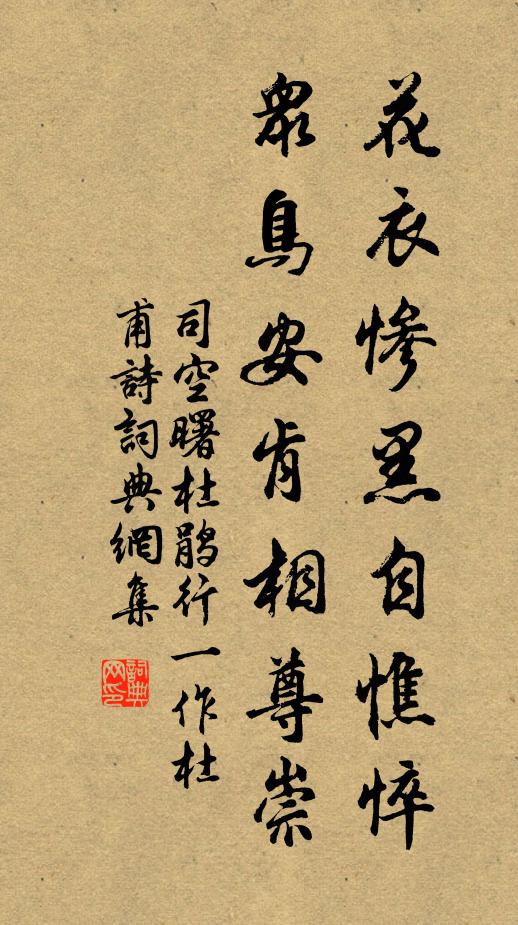 花衣慘黑自憔悴
眾鳥安肯相尊崇
司空曙杜鵑行一作杜
甫詩詞典網集
詞典
网印